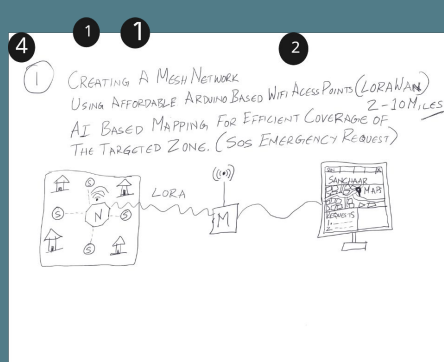 4
1
1
2
1 CREATING A MESH NETWORK
USING AFFORDABLE ARDUINO BASED WIFI ACESS POINTS (LORAWAN)
2-10 MILES
AI BASED MAPPING FOR EFFICIENT COVERAGE OF
THE TARGETED ZONE. (SOS EMERGENCY REQUEST)
S
LORA
S N S
S
M
SANCHAAR
MAPS
REQUESTS
1.
2.